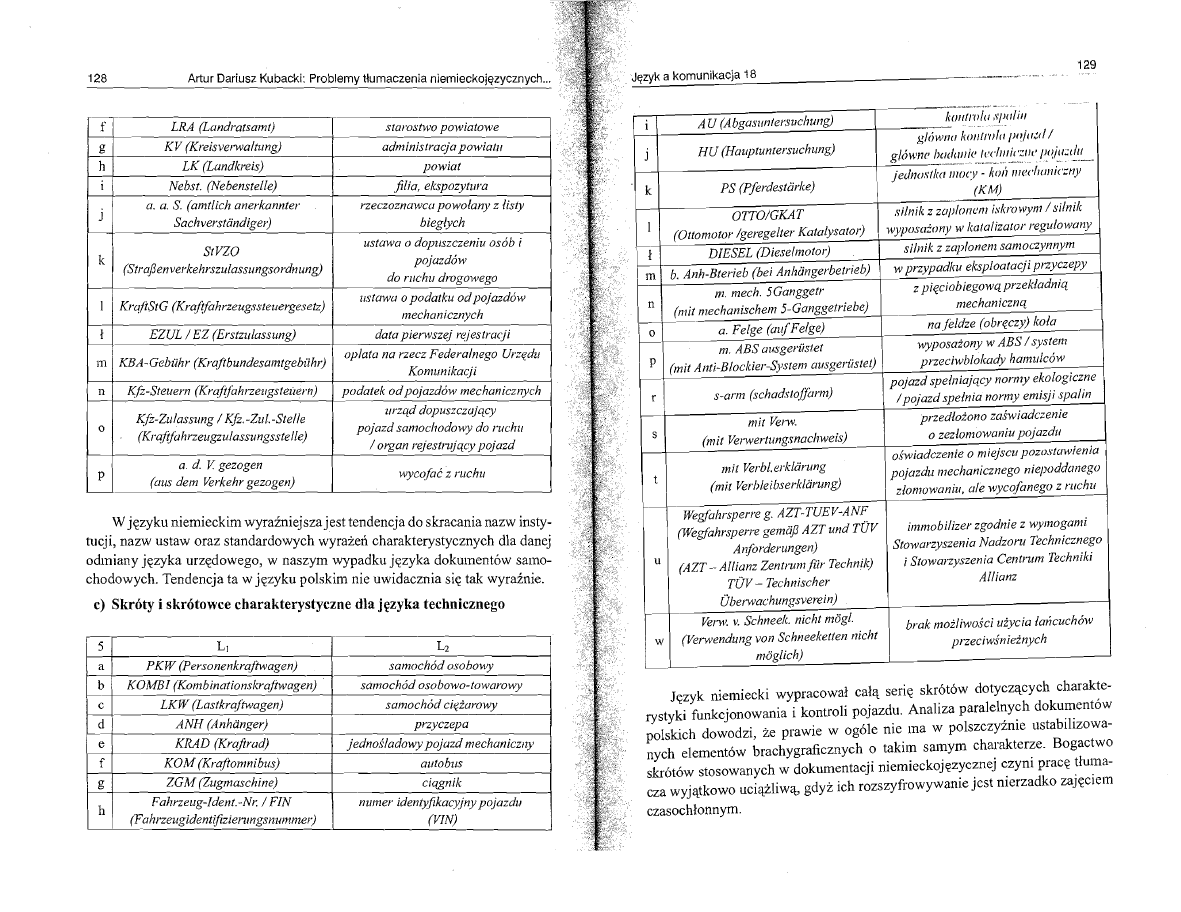 128 Artur Dariusz Kubacki: Problemy tłumaczenia niemieckojęzycznych...
f LRA (Landratsamt) starostwo powiatowe
g KV (Kreisverwaltung) administracja powiatu
h LK (Landkreis) powiat
i Nebst. (Nebenstelle) filia, ekspozytura
j a. a. S. (amtlich anerkannter rzeczoznawca powołany z listy
Sachverständiger) biegłych
k StVZO ustawa o dopuszczeniu osób i
(Straßenverkehrszulassungsordnung) pojazdów
do ruchu drogowego
l KraftStG (Kraftfahrzeugssteuergesetz) ustawa o podatku od pojazdów
mechanicznych
ł EZUL / EZ (Erstzulassung) data pierwszej rejestracji
m KBA-Gebühr (Kraftbundesamtgebühr) opłata na rzecz Federalnego Urzędu
Komunikacji
n Kfz-Steuern (Kraftfahrzeugsteuern) podatek od pojazdów mechanicznych
o Kfz-Zulassung / Kfz.-Zul.-Stelle urząd dopuszczający
(Kraftfahrzeugzulassungsstelle) pojazd samochodowy do ruchu
/ organ rejestrujący pojazd
p a. d. V. gezogen wycofać z ruchu
(aus dem Verkehr gezogen)
W języku niemieckim wyraźniejsza jest tendencja do skracania nazw insty-
tucji, nazw ustaw oraz standardowych wyrażeń charakterystycznych dla danej
odmiany języka urzędowego, w naszym wypadku języka dokumentów samo-
chodowych. Tendencja ta w języku polskim nie uwidacznia się tak wyraźnie.
c) Skróty i skrótowce charakterystyczne dla języka technicznego
5 L1 L2
a PKW (Personenkraftwagen) samochód osobowy
b KOMBI (Kombinationskraftwagen) samochód osobowo-towarowy
c LKW (Lastkraftwagen) samochód ciężarowy
d ANH (Anhänger) przyczepa
e KRAD (Kraftrad) jednośladowy pojazd mechaniczny
f KOM (Kraftomnibus) autobus
g ZGM (Zugmaschine) ciągnik
h Fahrzeug-Ident.-Nr. / FIN numer identyfikacyjny pojazdu
(Fahrzeugidentifizierungsnummer) (VIN)
Język a komunikacja 18 129
i AU (Abgasuntersuchung) kontrola spalin
j HU (Hauptuntersuchung) główna kontrola pojazd /
główne badanie techniczne pojazdu
k PS (Pferdestärke) jednostka mocy - koń mechaniczny
(KM)
l OTTO/GKAT silnik z zapłonem iskrowym / silnik
(Ottomotor /geregelter Katalysator) wyposażony w katalizator regulowany
ł DIESEL (Dieselmotor) silnik z zapłonem samoczynnym
m b. Anh-Bterieb (bei Anhängerbetrieb) w przypadku eksploatacji przyczepy
n m. mech. 5Ganggetr z pięciobiegową przekładnią
(mit mechanischem 5-Ganggetriebe) mechaniczną
o a. Felge (auf Felge) na feldze (obręczy) koła
p m. ABS ausgerüstet wyposażony w ABS / system
(mit Anti-Blockier-System ausgerüstet) przeciwblokady hamulców
r s-arm (schadstoffarm) pojazd spełniający normy ekologiczne
/ pojazd spełnia normy emisji spalin
s mit Verw. przedłożono zaświadczenie
(mit Verwertungsnachweis) o zezłomowaniu pojazdu
t mit Verbl.erklärung oświadczenie o miejscu pozostawienia
(mit Verbleibserklärung) pojazdu mechanicznego niepoddanego
złomowaniu, ale wycofanego z ruchu
u Wegfahrsperre g. AZT-TUEV-ANF immobilizer zgodnie z wymogami
(Wegfahrsperre gemäß AZT und TÜV Stowarzyszenia Nadzoru Technicznego
Anforderungen) i Stowarzyszenia Centrum Techniki
(AZT – Allianz Zentrum für Technik) Allianz
TÜV – Technischer
Überwachungsverein)
w Verw. v. Schneek. nicht mögl. brak możliwości użycia łańcuchów
(Verwendung von Schneeketten nicht przeciwśnieżnych
möglich)
Język niemiecki wypracował całą serię skrótów dotyczących charakte-
rystyki funkcjonowania i kontroli pojazdu. Analiza paralelnych dokumentów
polskich dowodzi, że prawie w ogóle nie ma w polszczyźnie ustabilizowa-
nych elementów brachygraficznych o takim samym charakterze. Bogactwo
skrótów stosowanych w dokumentacji niemieckojęzycznej czyni pracę tłuma-
cza wyjątkowo uciążliwą, gdyż ich rozszyfrowywanie jest nierzadko zajęciem
czasochłonnym.